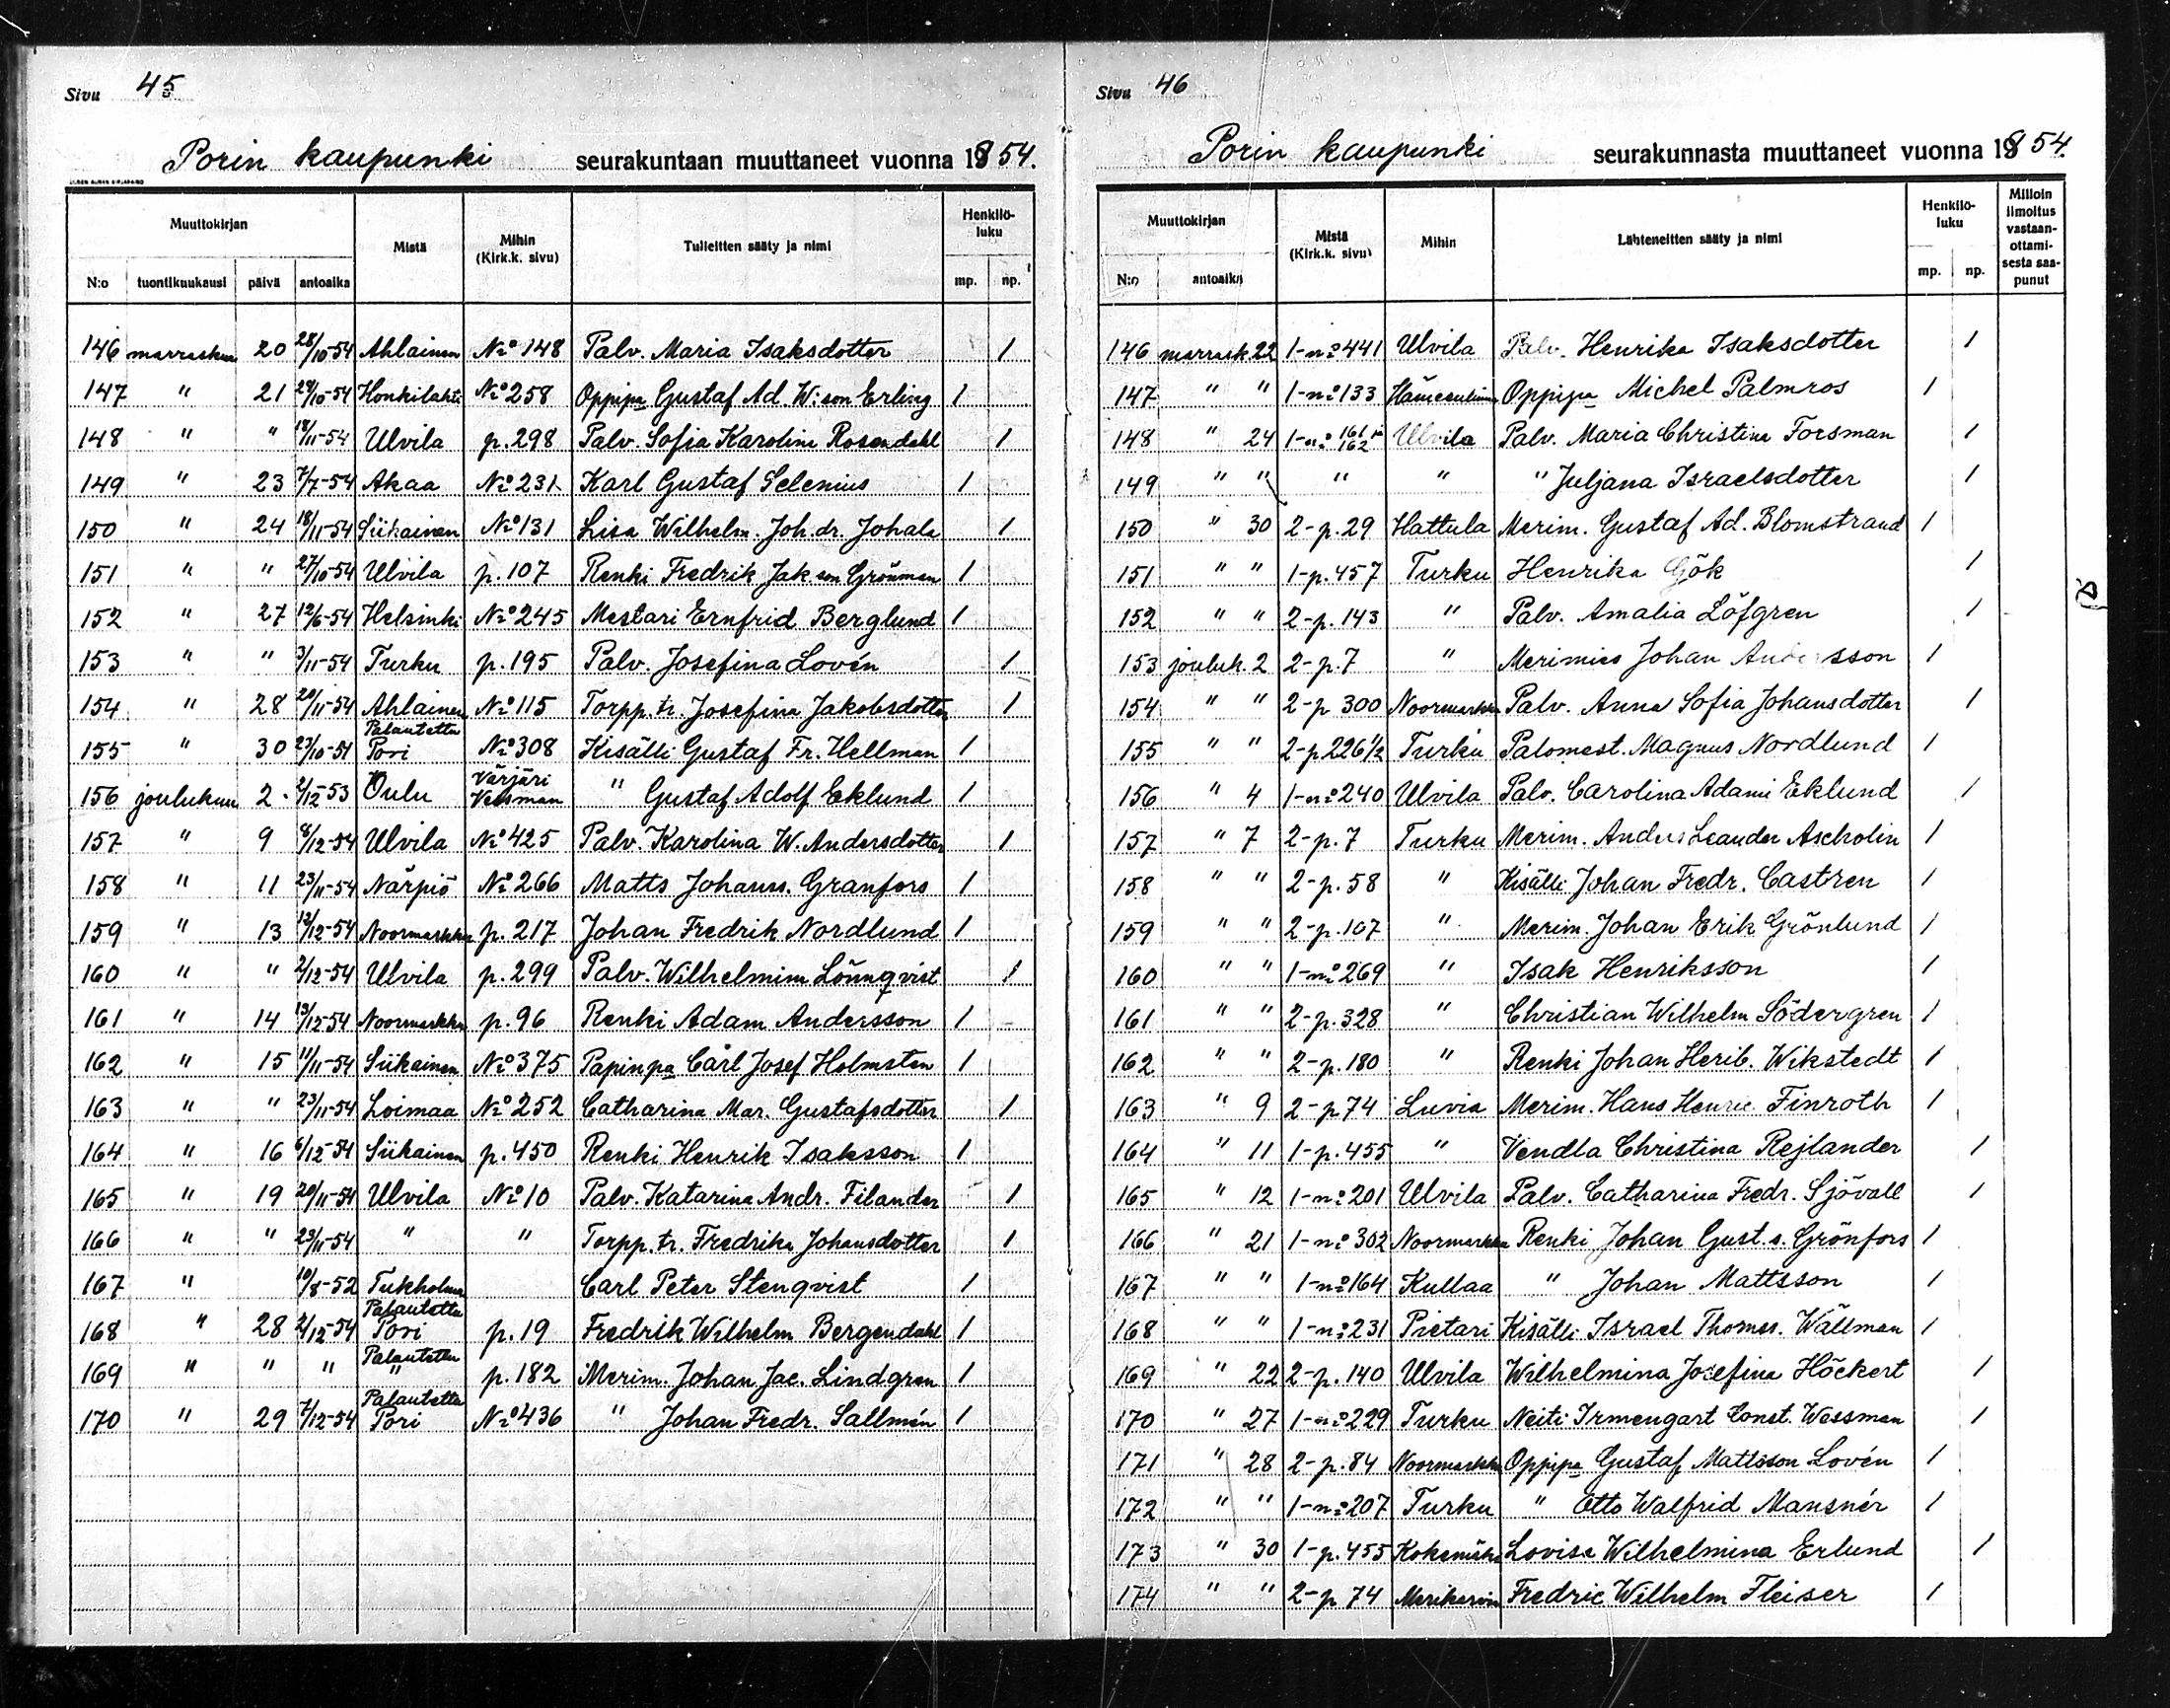 Sivu 45
Porin kaupunki seurakuntaan muuttaneet vuonna 1854.
Muuttokirjan Mistä Mihin (Kirk.k. sivu) Tulleitten sääty ja nimi Henkilö-luku
N:o tuontikuukausi päivä antoaika mp. np.
146 marraskuu 20 28/10-54 Ahlainen No 148 Palv. Maria Isaksdotter 1
147 " 21 28/10-54 Honkilahti No 258 Oppipa Gustaf Ad. W:son Erling 1
148 " " 18/11-54 Ulvila p. 298 Palv. Sofia Karolina Rosendahl 1
149 " 23 7/7-54 Akaa No 231 Karl Gustaf Selenius 1
150 " 24 18/11-54 Siikainen No 131 Lisa Wilhelm. Joh. dr. Johala 1
151 " " 27/10-54 Ulvila p. 107 Renki Fredrik Jak.son Grönman 1
152 " 27 12/6-54 Helsinki No 245 Mestari Ernfrid Berglund 1
153 " " 3/11-54 Turku p. 195 Palv. Josefina Lovén 1
154 " 28 20/11-54 Ahlainen No 115 Torpp. tr. Josefina Jakobsdotter 1
155 " 30 23/10-54 Palautettu Pori No 308 Kisälli Gustaf Fr. Hellman 1
156 joulukuu 2. 2/12-53 Oulu Värjäri Vessman " Gustaf Adolf Eklund 1
157 " 9 8/12-54 Ulvila No 425 Palv. Karolina W. Andersdotter 1
158 " 11 23/11-54 Närpiö No 266 Matts Johanss. Granfors 1
159 " 13 12/12-54 Noormarkku p. 217 Johan Fredrik Nordlund 1
160 " " 2/12-54 Ulvila p. 299 Palv. Wilhelmina Lönnqvist 1
161 " 14 13/12-54 Noormarkku p. 96 Renki Adam Andersson 1
162 " 15 11/11-54 Siikainen No 375 Papinpa Carl Josef Holmsten 1
163 " " 23/11-54 Loimaa No 252 Catharina Mar. Gustafsdotter 1
164 " 16 6/12-54 Siikainen p. 450 Renki Henrik Isaksson 1
165 " 19 20/11-54 Ulvila No 10 Palv. Katarina Andr. Filander 1
166 " " 23/11-54 " " Torpp. tr. Fredrika Johansdotter 1
167 " 10/8-52 Tukholma Carl Peter Stenqvist 1
168 " 28 2/12-54 Palautettu Pori p. 19 Fredrik Wilhelm Bergendahl 1
169 " " " Palautettu " p. 182 Merim. Johan Jac. Lindgren 1
170 " 29 7/12-54 Palautettu Pori No 436 " Johan Fredr. Sallmén 1
Sivu 46
Porin kaupunki seurakunnasta muuttaneet vuonna 1854.
Muuttokirjan Mistä (Kirk.k. sivu) Mihin Lähteneitten sääty ja nimi Henkilö-luku Milloin ilmoitus vastaan-ottami-sesta saa-punut
N:o antoaika mp. np.
146 marrask. 22 1-no 441 Ulvila Palv. Henrika Isaksdotter 1
147 " " 1-no 133 Hämeenlinna Oppipa Michel Palmros 1
148 " 24 1-no 161 ja 162 Ulvila Palv. Maria Christina Forsman 1
149 " " " " " Juljana Israelsdotter 1
150 " 30 2-p. 29 Hattula Merim. Gustaf Ad. Blomstrand 1
151 " " 1-p. 457 Turku Henrika Gök 1
152 " " 2-p. 143 " Palv. Amalia Löfgren 1
153 jouluk. 2 2-p. 7 " Merimies Johan Andersson 1
154 " " 2-p 300 Noormarkku Palv. Anna Sofia Johansdotter 1
155 " " 2-p 226 1/2 Turku Palomest. Magnus Nordlund 1
156 " 4 1-no 240 Ulvila Palv. Carolina Adami Eklund 1
157 " 7 2-p. 7 Turku Merim. Anders Leander Ascholin 1
158 " " 2-p. 58 " Kisälli Johan Fredr. Castren 1
159 " " 2-p. 107 " Merim. Johan Erik Grönlund 1
160 " " 1-no 269 " Isak Henriksson 1
161 " " 2-p. 328 " Christian Wilhelm Södergren 1
162 " " 2-p. 180 " Renki Johan Herib. Wikstedt 1
163 " 9 2-p 74 Luvia Merim. Hans Henric Finroth 1
164 " 11 1-p. 455 " Vendla Christina Rejlander 1
165 " 12 1-no 201 Ulvila Palv. Catharina Fredr. Sjövall 1
166 " 21 1-no 302 Noormarkku Renki Johan Gust. s. Grönfors 1
167 " " 1-no 164 Kullaa " Johan Mattsson 1
168 " " 1-no 231 Pietari Kisälli Israel Thomas. Wällman 1
169 " 22 2-p. 140 Ulvila Wilhelmina Josefina Höckert 1
170 " 27 1-no 229 Turku Neiti Irmengart Const. Wessman 1
171 " 28 2-p. 84 Noormarkku Oppipa Gustaf Mattsson Lovén 1
172 " " 1-no 207 Turku " Otto Walfrid Mansnér 1
173 " 30 1-p. 455 Kokemäki Lovisa Wilhelmina Erlund 1
174 " " 2-p 74 Merikarvia Fredric Wilhelm Fleiser 1